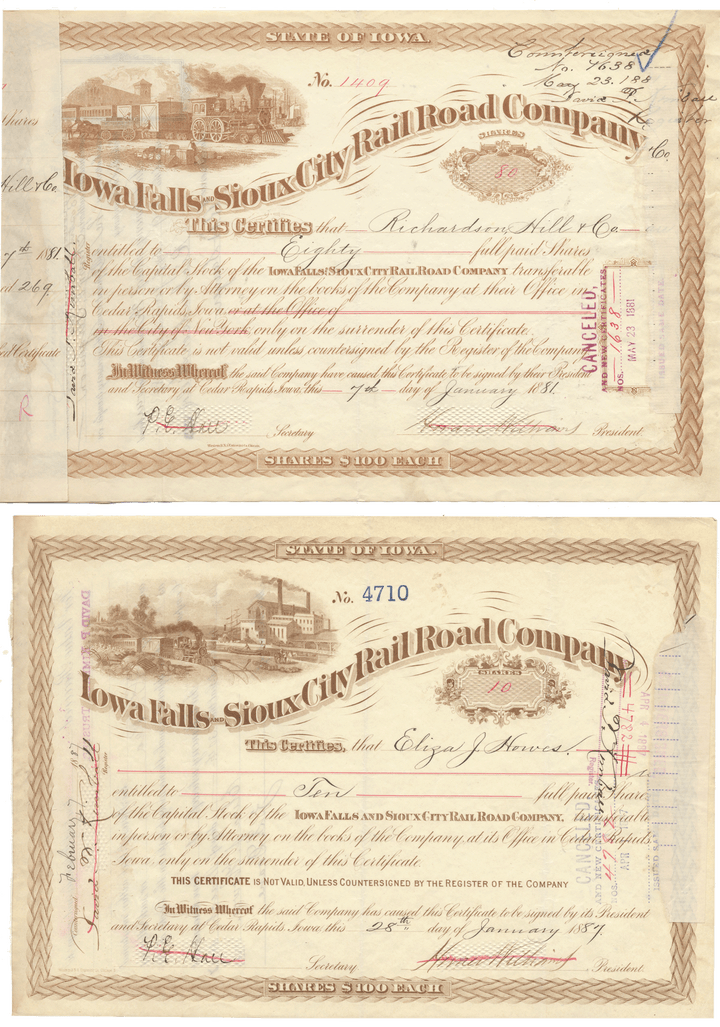 STATE OF IOWA.
Countersigned
No. 1638
May 23. 188
David P.
No. 1409
Iowa Falls AND Sioux City Rail Road Company
SHARES
80
Shares
Hill & Co
7th 1881
269
Certificate
This Certifies that Richardson, Hill & Co
entitled to Eighty full paid Shares
of the Capital Stock of the IOWA FALLS AND SIOUX CITY RAIL ROAD COMPANY transferable
in person or by Attorney on the books of the Company at their Office in
Cedar Rapids Iowa or at the Office of
in the City of New York only on the surrender of this Certificate.
This Certificate is not valid unless countersigned by the Register of the Company
In Witness Whereof the said Company have caused this Certificate to be signed by their President
and Secretary at Cedar Rapids Iowa this 7th day of January 1881.
P. E. Hall Secretary
Horace Williams President
Register
CANCELED,
AND NEW CERTIFICATES
NOS. 1638
MAY 23 1881
SHARES $100 EACH
STATE OF IOWA.
No. 4710
Iowa Falls AND Sioux City Rail Road Company
SHARES
10
This Certifies, that Eliza J. Howes.
entitled to Ten full paid Shares
of the Capital Stock of the IOWA FALLS AND SIOUX CITY RAIL ROAD COMPANY, transferable
in person or by Attorney on the books of the Company, at its Office in Cedar Rapids
Iowa only on the surrender of this Certificate
THIS CERTIFICATE IS NOT VALID, UNLESS COUNTERSIGNED BY THE REGISTER OF THE COMPANY
In Witness Whereof the said Company has caused this Certificate to be signed by its President
and Secretary at Cedar Rapids Iowa this 28th day of January 1887
P. E. Hall Secretary
Horace Williams President.
Countersigned February 7 1887
Register
4782
CANCELED
AND NEW CERTI
NOS.
APR
SHARES $100 EACH